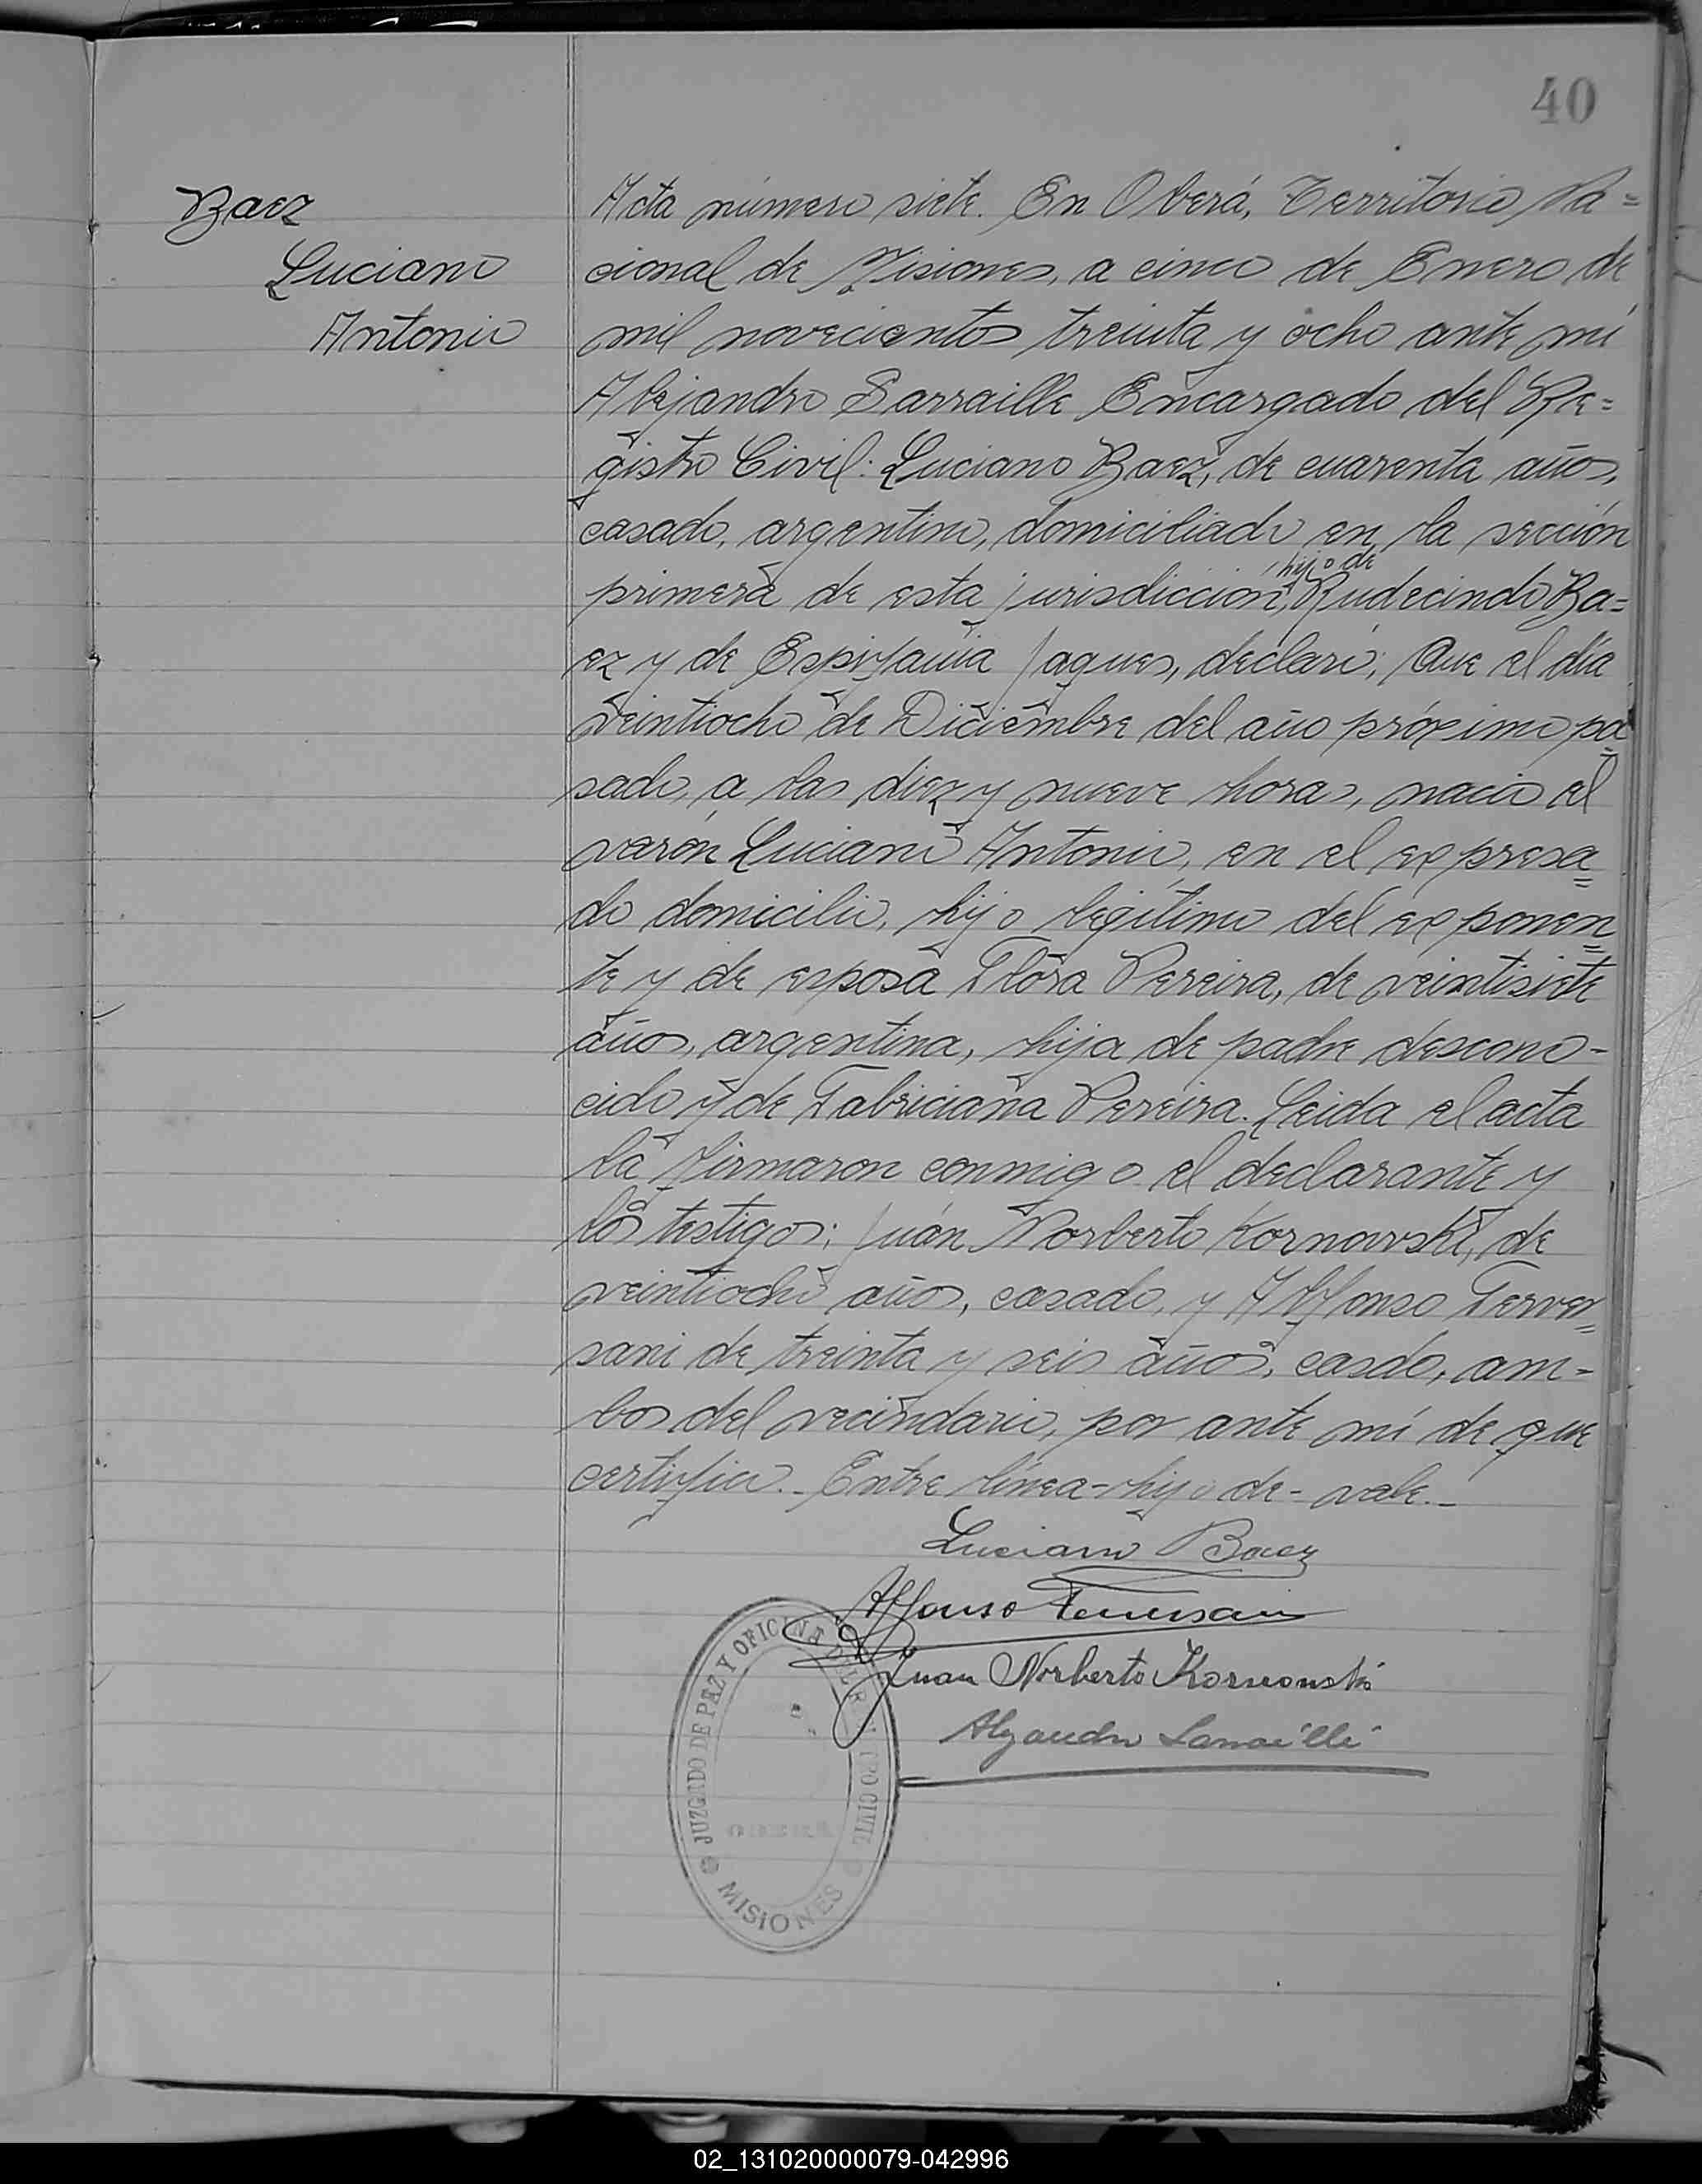 40
Baez
Luciano
Antonio
Acta número siete. En Oberá, Territorio Na=
cional de Misiones, a cinco de Enero de
mil novecientos treinta y ocho ante mí
Alejandro Sarraille Encargado del Re=
gistro Civil: Luciano Baez, de cuarenta años,
casado, argentino, domiciliado en la sección
hijo de
primera de esta jurisdicción, Rudecindo Ba=
ez y de Espifania Jaques, declaró; Que el día
veintiocho de Diciembre del año próximo pa
sado, a las diez y nueve horas, nació el
varón Luciano Antonio, en el expresa=
do domicilio, hijo legítimo del exponen=
te y de esposa Flora Pereira, de veintisiete
años, argentina, hija de padre descono-
cido y de Fabriciana Pereira. Leida el acta
la firmaron conmigo el declarante y
los testigos; Juán Norberto Kornowski, de
veintiocho años, casado, y Alfonso Ferver=
sani de treinta y seis años, casdo, am-
bos del vecindario, por ante mí de que
certifico.- Entre línea-hijo de- vale.-
Luciano Baez
Alfonso Ferversani
Juan Norberto Kornowski
Alejandro Sarraille
JUZGADO DE PAZ Y OFICINA DEL REGISTRO CIVIL
OBERÁ
MISIONES
02_131020000079-042996